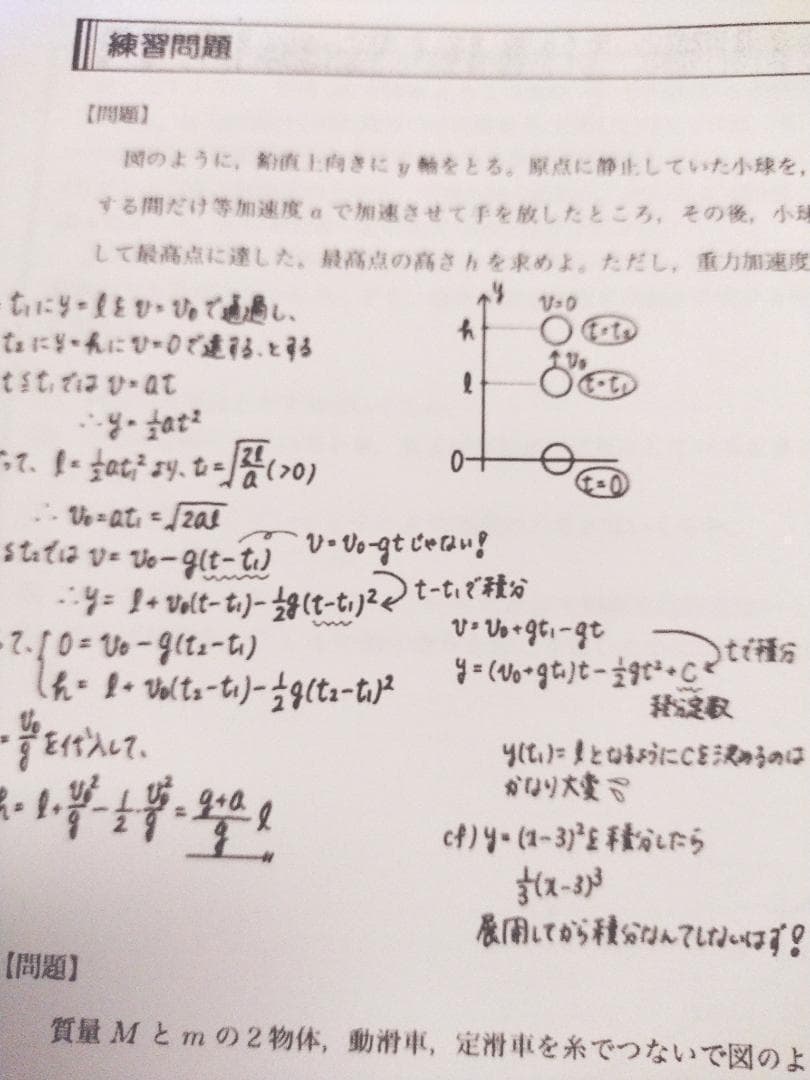 練習問題
【問題】
図のように，鉛直上向きに y 軸をとる。原点に静止していた小球を，
する間だけ等加速度 a で加速させて手を放したところ，その後，小球
して最高点に達した。最高点の高さ h を求めよ。ただし，重力加速度
t₁にy=lをv=v₀で通過し、
t₂にy=hにv=0で達する、とする
t≦t₁では v=at
∴y=½at²
て、l=½at₁²より、t₁=√(2l/a) (>0)
∴ v₀=at₁=√(2al)
≦t₂では v=v₀-g(t-t₁)
v=v₀-gtじゃない!
∴y=l+v₀(t-t₁)-½g(t-t₁)²
t-t₁で積分
て、{0=v₀-g(t₂-t₁)
h=l+v₀(t₂-t₁)-½g(t₂-t₁)²
=v₀/gを代入して、
h=l+v₀²/g-1/2·v₀²/g=(g+a)/g l
y
v=0
h
t=t₂
v₀
l
t=t₁
0
t=0
v=v₀+gt₁-gt
tで積分
y=(v₀+gt₁)t-½gt²+C
積分定数
y(t₁)=lとなるようにCを決めるのは
かなり大変
cf) y=(x-3)²を積分したら
⅓(x-3)³
展開してから積分なんてしないはず!
【問題】
質量 M と m の2物体，動滑車，定滑車を糸でつないで図のよ